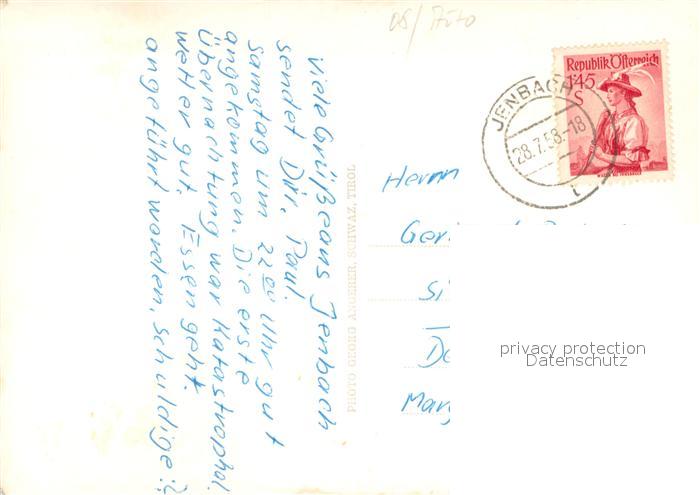 08/Tüto
Viele Grüße aus Jenbach
sendet Dir, Paul.
Samstag um 22.00 Uhr gut
angekommen. Die erste
Übernachtung war Katastrophal.
Wetter gut. Essen geht.
angeführt worden, schuldige:?
PHOTO GEORG ANGERER, SCHWAZ, TIROL
Republik Österreich
1.45
S
JENBACH
28.7.58-18
Herrn
privacy protection
Datenschutz